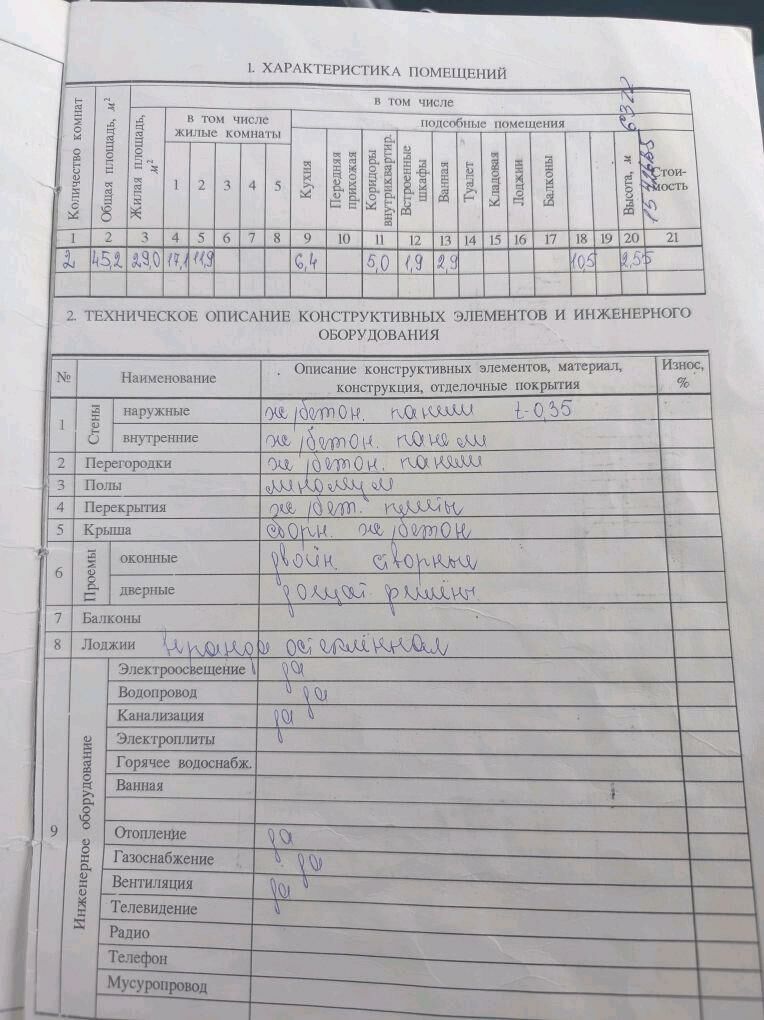 1. ХАРАКТЕРИСТИКА ПОМЕЩЕНИЙ
Количество комнат
Общая площадь, м²
Жилая площадь, м²
в том числе
в том числе жилые комнаты
подсобные помещения
1 2 3 4 5
Кухня
Передняя прихожая
Коридоры внутриквартир.
Встроенные шкафы
Ванная
Туалет
Кладовая
Лоджии
Балконы
Высота, м
Стои-
мость
1 2 3 4 5 6 7 8 9 10 11 12 13 14 15 16 17 18 19 20 21
2 45,2 29,0 17,1 11,9 6,4 5,0 1,9 2,9 10,5 2,55
2. ТЕХНИЧЕСКОЕ ОПИСАНИЕ КОНСТРУКТИВНЫХ ЭЛЕМЕНТОВ И ИНЖЕНЕРНОГО
ОБОРУДОВАНИЯ
№ Наименование Описание конструктивных элементов, материал, Износ,
конструкция, отделочные покрытия %
1 Стены наружные же/бетон. панели t-0,35
внутренние же/бетон. панели
2 Перегородки же/бетон. панели
3 Полы линолеум
4 Перекрытия же/бет. плиты
5 Крыша сборн. же/бетон
6 Проемы оконные двойн. створные
дверные дощат. филён.
7 Балконы
8 Лоджии веранда остеклённая
9 Инженерное оборудование
Электроосвещение да
Водопровод да
Канализация да
Электроплиты
Горячее водоснабж.
Ванная
Отопление да
Газоснабжение да
Вентиляция да
Телевидение
Радио
Телефон
Мусоропровод